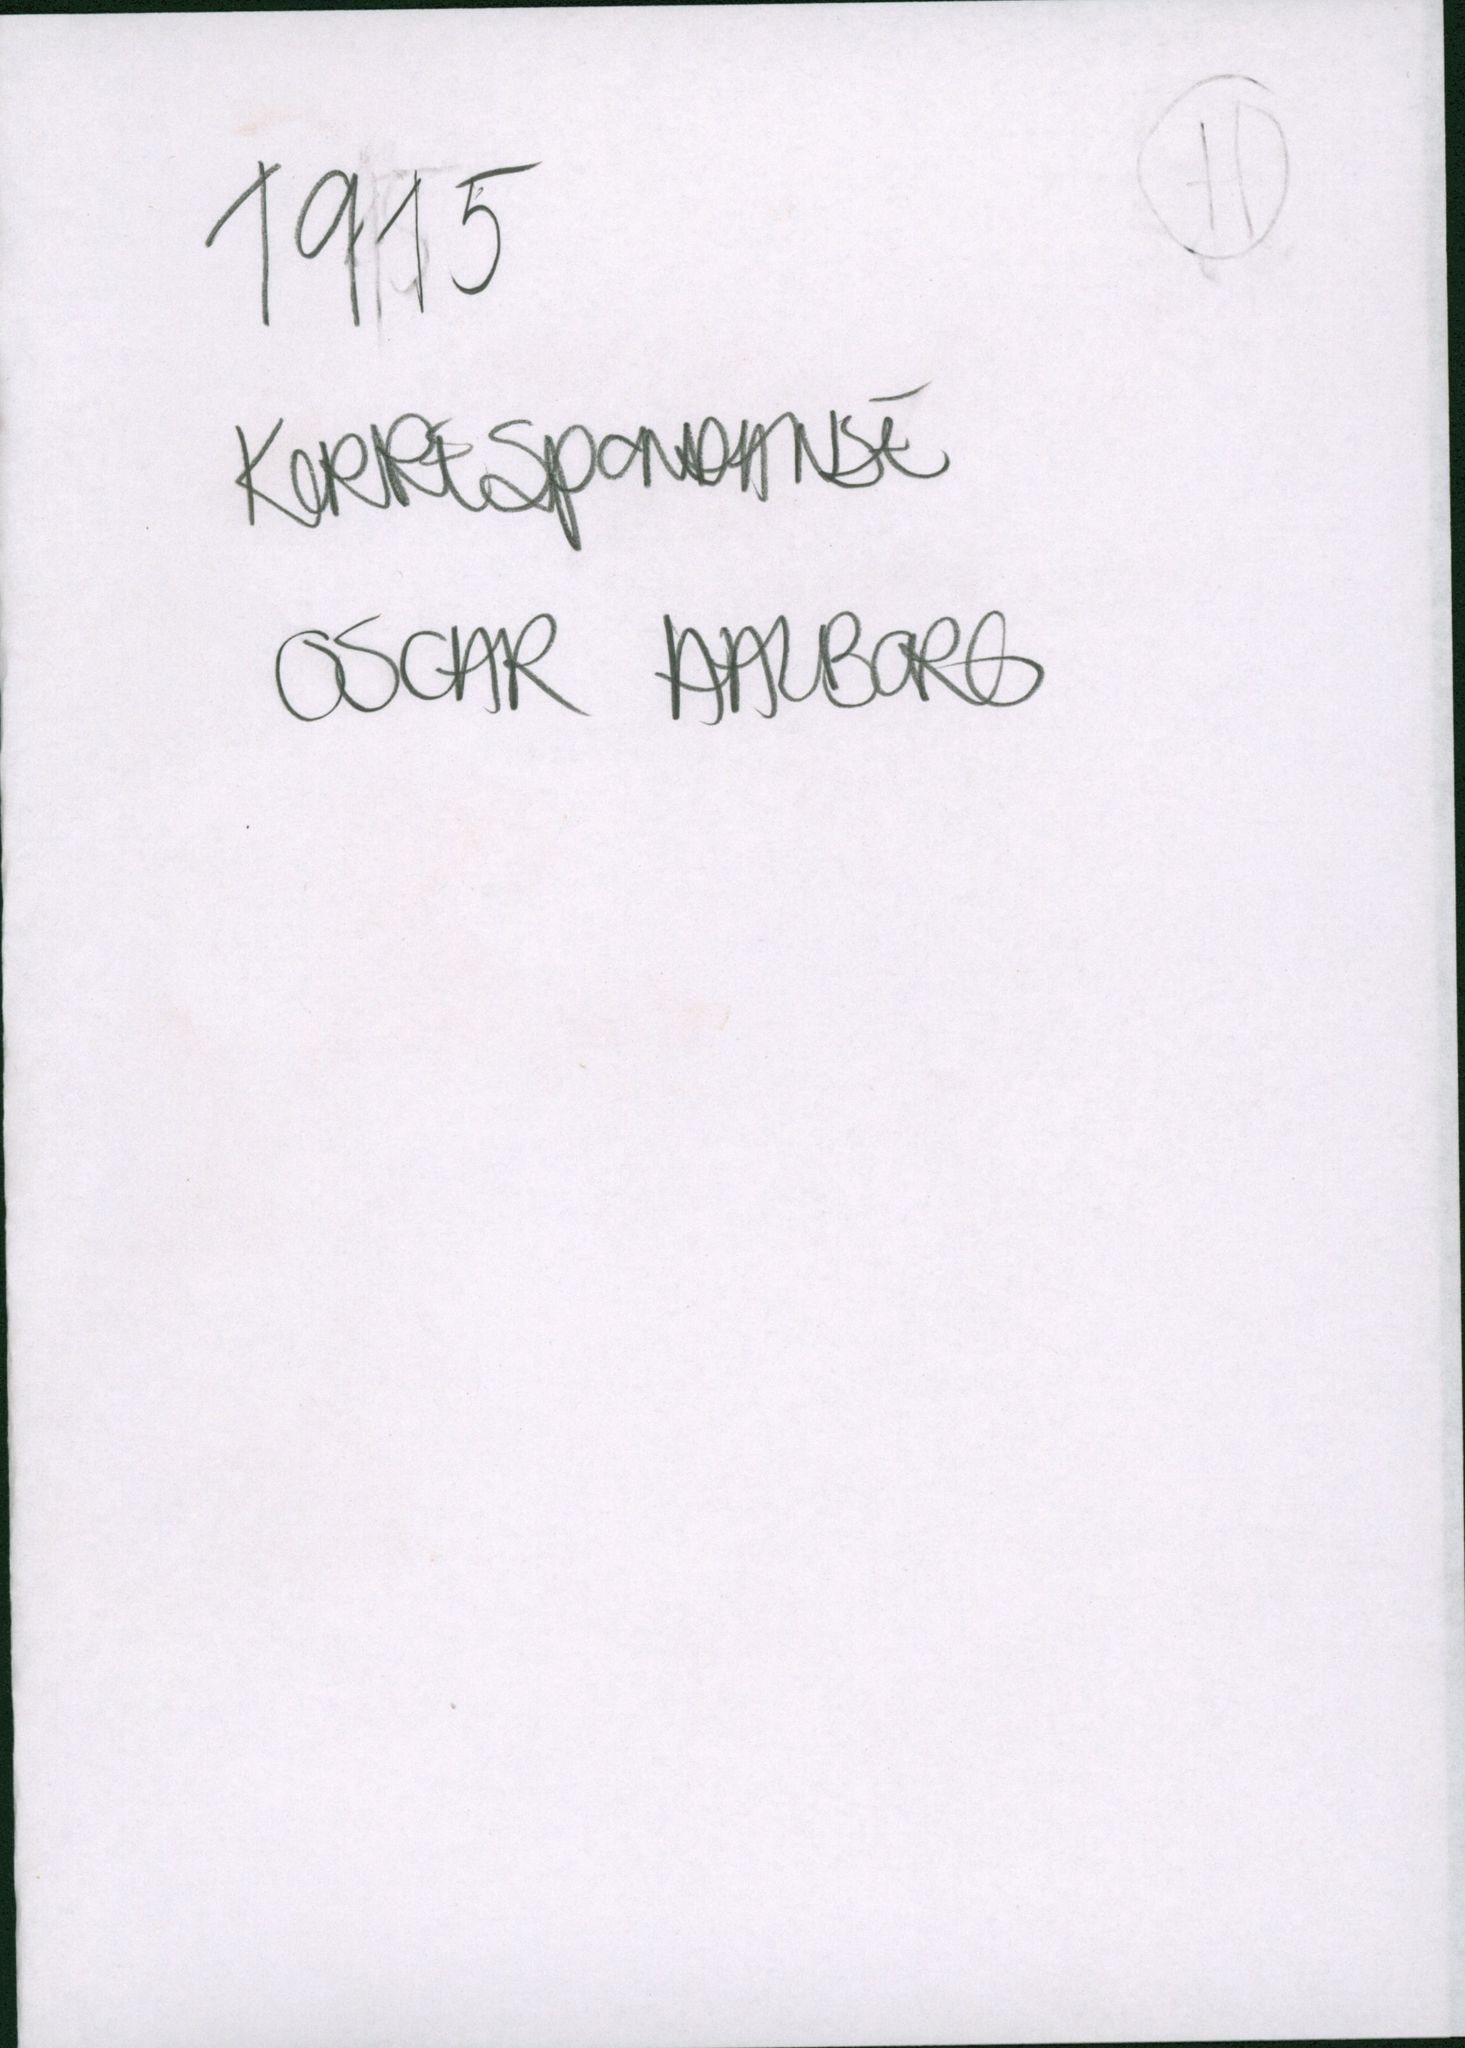 H
1915
KORRESPONDANSE
OSCAR AALBORG